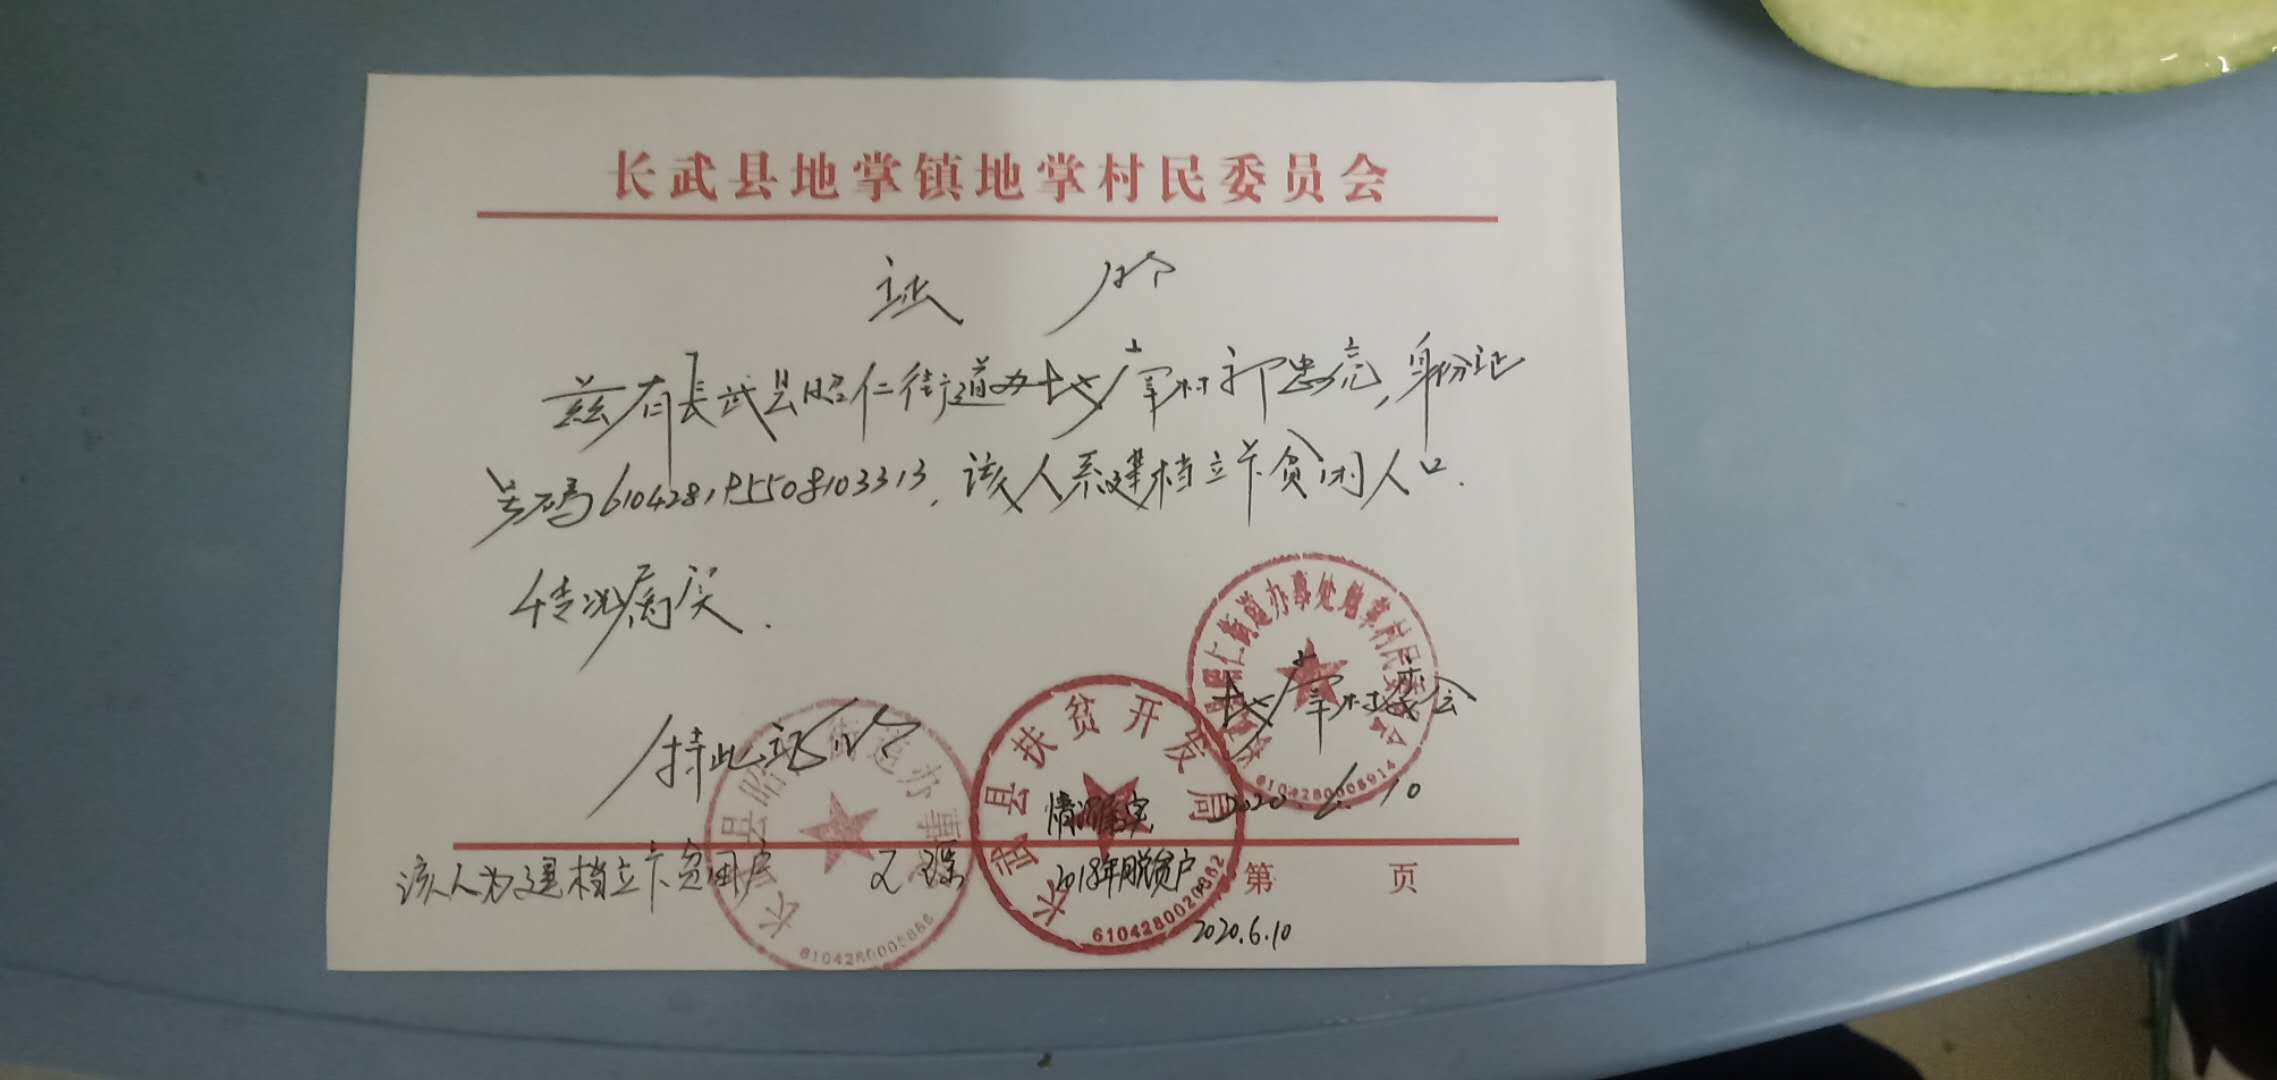 长武县地掌镇地掌村民委员会
证 明
兹有長武县昭仁街道办地掌村郭忠亮,身份证
号码610428195508103313,该人系建档立卡贫困人口.
情况属实.
特此证明
地掌村委会
2020.6.10
昭仁街道办事处地掌村民委员会
6104280008914
长武县扶贫开发局
6104280020862
长武县昭仁街道办事
情况属实
2018年脱贫户
2020.6.10
该人为建档立卡贫困户
第 页